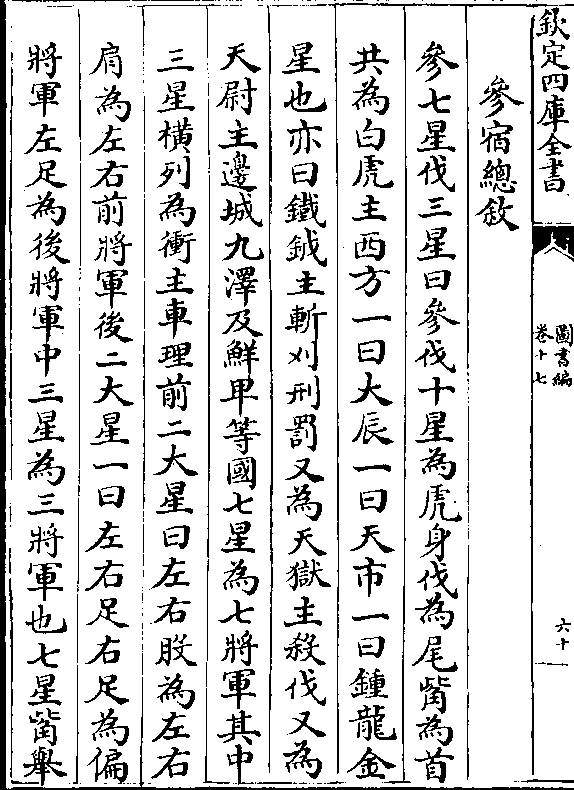 欽定四庫全書
圖書編
卷十七
六十
參宿總敘
參七星伐三星曰參伐十星為虎身伐為尾觜為首
共為白虎主西方一曰大辰一曰天市一曰鍾龍金
星也亦曰鐵鉞主斬刈刑罰又為天獄主殺伐又為
天尉主邊城九澤及鮮甲等國七星為七將軍其中
三星橫列為衝主車理前二大星曰左右股為左右
肩為左右前將軍後二大星一曰左右足右足為偏
將軍左足為後將軍中三星為三將軍也七星觜舉